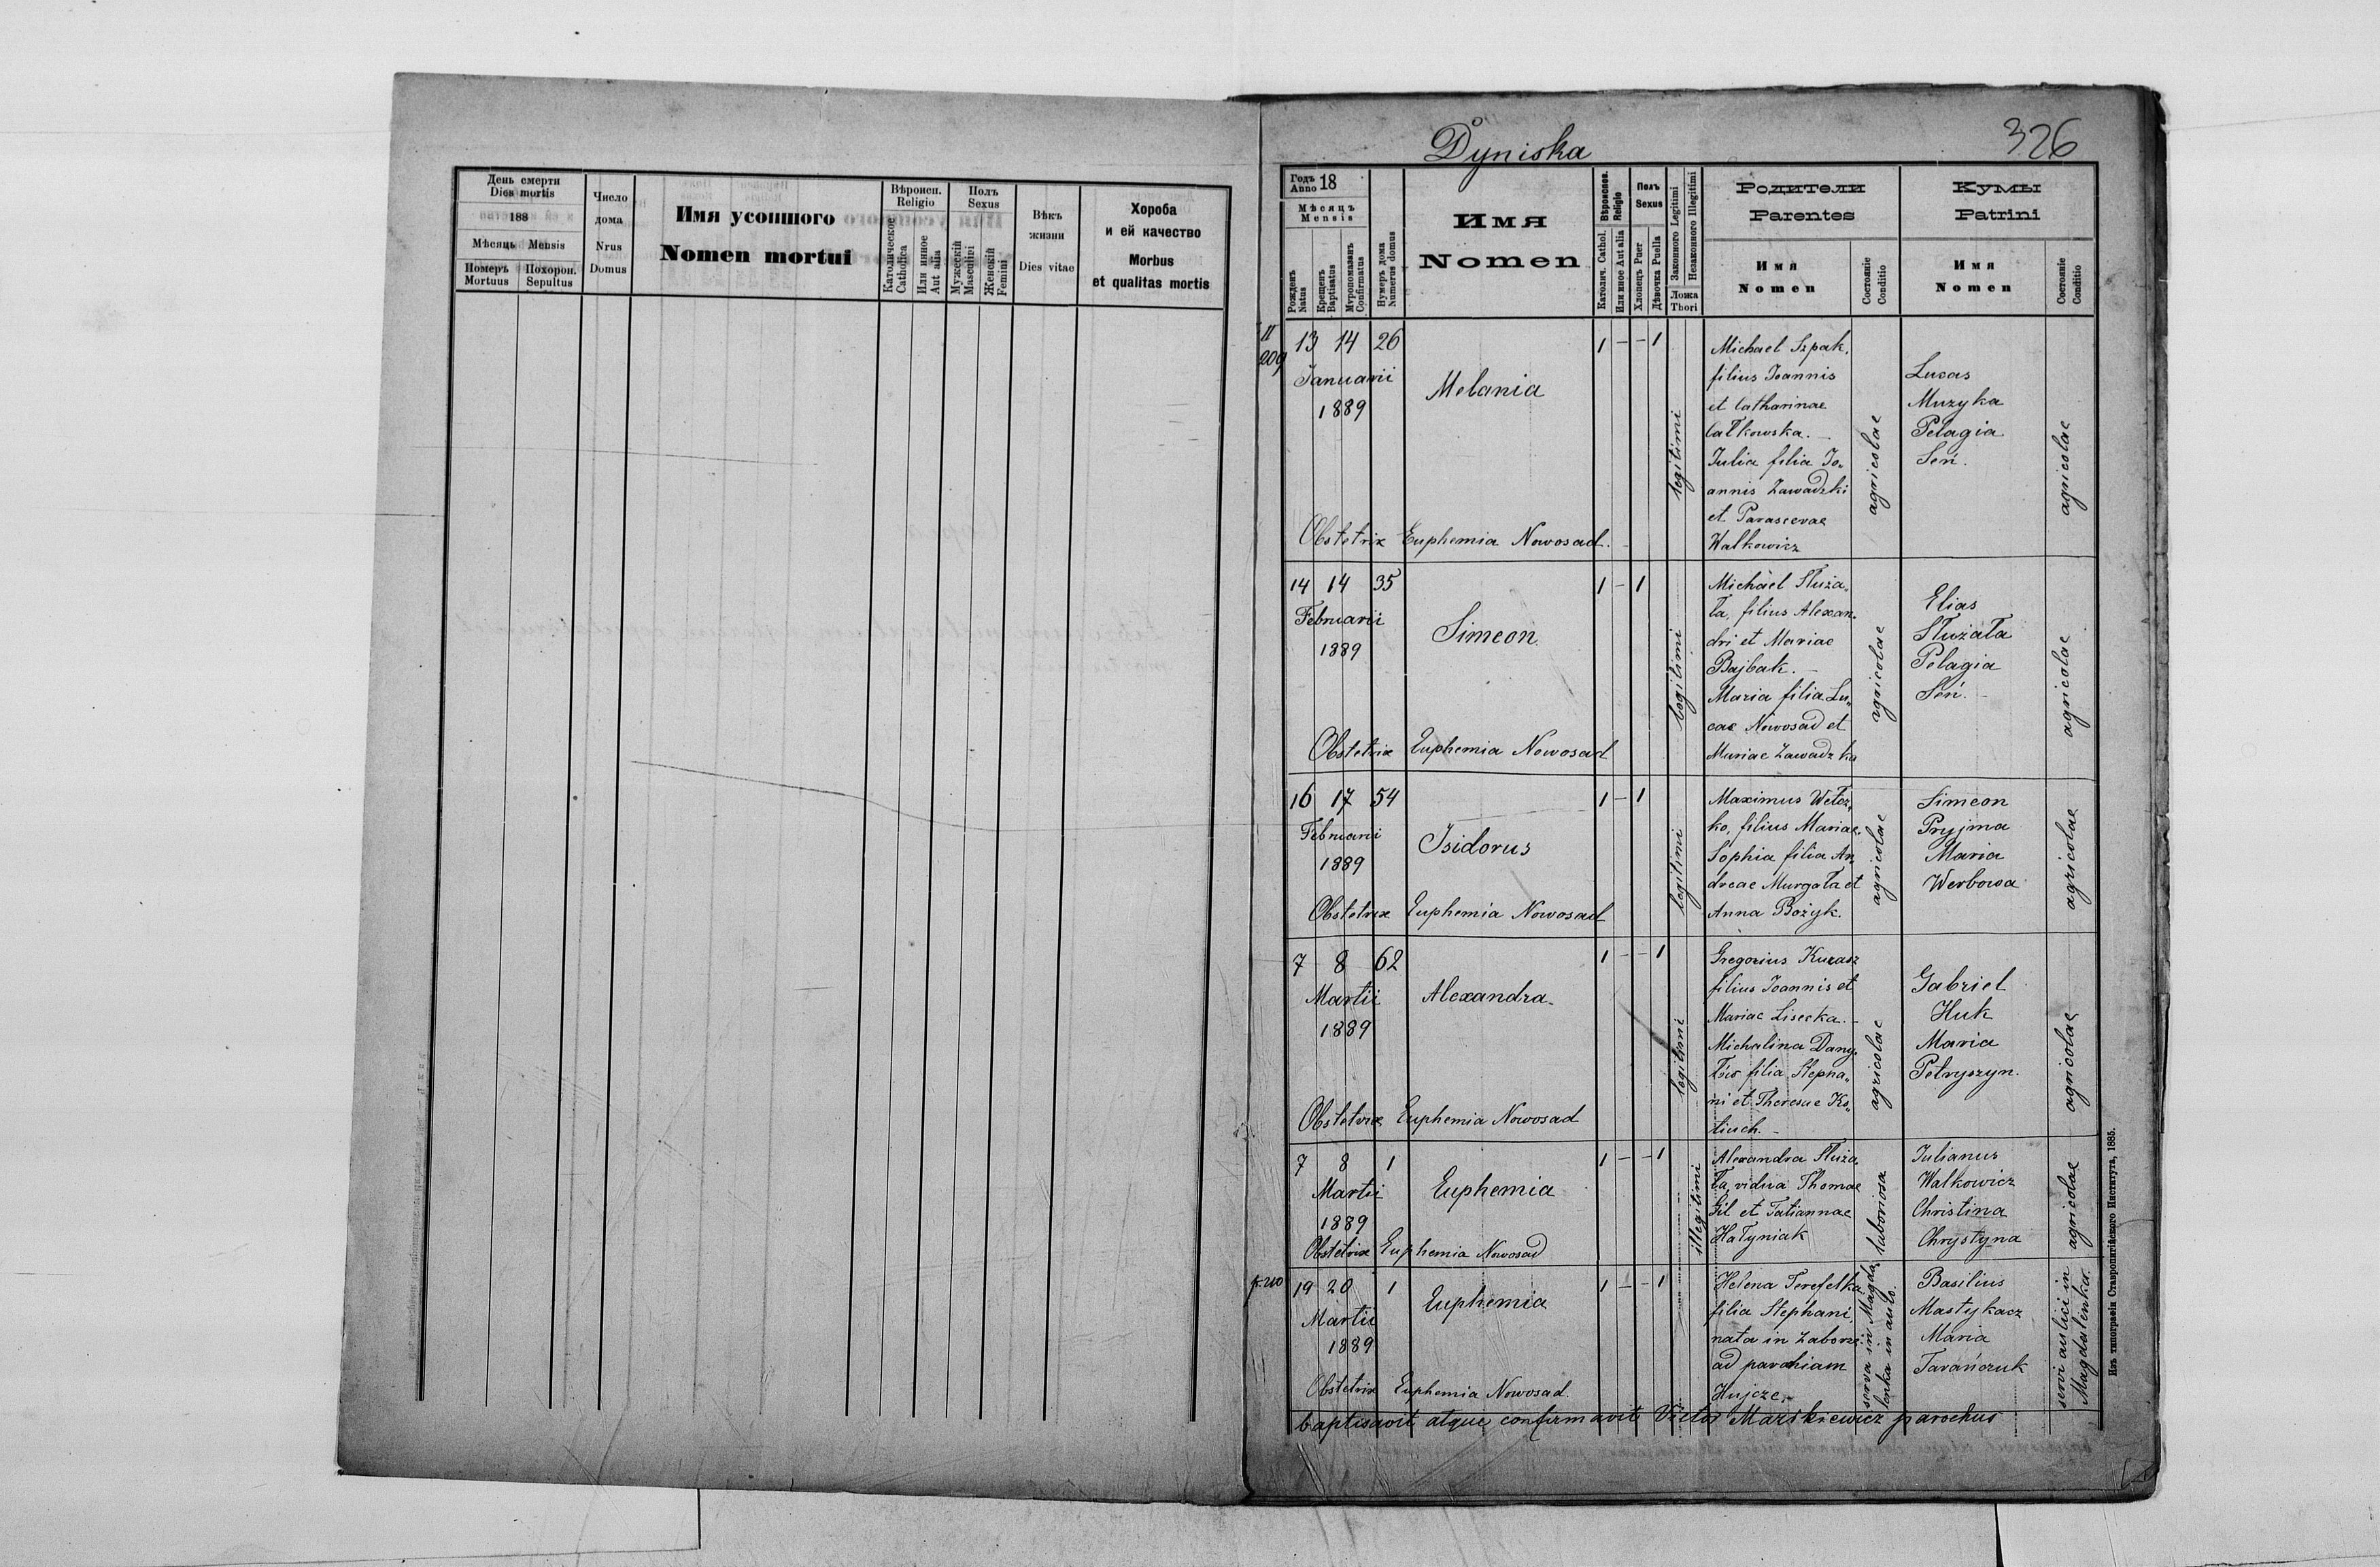 День смерти
Dies mortis
188
Мѣсяць Mensis
Померъ Похорон.
Mortuus Sepultus
Число
дома
Nrus
Domus
Имя усопшого
Nomen mortui
Вѣроисп.
Religio
Католическое
Catholica
Или инное
Aut alia
Полъ
Sexus
Мужескій
Masculini
Женскій
Femini
Вѣкъ
жизни
Dies vitae
Хороба
и ей качество
Morbus
et qualitas mortis
Dyniska
326
Годъ
Anno 18
Мѣсяцъ
Mensis
Рожденъ
Natus
Крещенъ
Baptisatus
Мѵропомазанъ
Confirmatus
Нумеръ дома
Numerus domus
Имя
Nomen
Вѣроиспов.
Religio
Католич. Cathol.
Или иное Aut alia
Полъ
Sexus
Хлопецъ Puer
Дѣвочка Puella
Законного Legitimi
Незаконного Illegitimi
Ложа
Thori
Родители
Parentes
Имя
Nomen
Состояніе
Conditio
Кумы
Patrini
Имя
Nomen
Состояніе
Conditio
II
209
13 14 26
Januarii
1889
Melania
1 - - 1
legitimi
Michael Szpak,
filius Joannis
et Catharinae
Całkowska. -
Julia filia Jo„
annis Zawadzki
et Parascevae
Walkowicz
agricolae
Lucas
Muzyka
Pelagia
Seń.
agricolae
Obstetrix Euphemia Nowosad.
14 14 35
Februarii
1889
Simeon
1 - 1
legitimi
Michael Służa„
ła, filius Alexan„
dri et Mariae
Bajbak. -
Maria filia Lu„
cae Nowosad et
Mariae Zawadzka
agricolae
Elias
Służała
Pelagia
Seń. -
agricolae
Obstetrix Euphemia Nowosad
16 17 54
Februarii
1889
Isidorus
1 - 1
legitimi
Maximus Wełcz„
ko, filius Mariae.
Sophia filia An„
dreae Murgała et
Anna Bożyk.
agricolae
Simeon
Pryjma
Maria
Werbowa
agricolae
Obstetrix Euphemia Nowosad
7 8 62
Martii
1889
Alexandra
1 - - 1
legitimi
Gregorius Kurasz
filius Joannis et
Mariae Lisecka. -
Michalina Dany„
łów filia Stepha„
ni et Theresae Ko„
tiuch. -
agricolae
Gabriel
Huk
Maria
Petryszyn.
agricolae
Obstetrix Euphemia Nowosad
7 8 1
Martii
1889
Euphemia
1 - - 1
illegitimi
Alexandra Służa„
ła, vidua Thomae
fil et Tatiannae
Hałyniak
laboriosa
Julianus
Walkowicz
Christina
Chrystyna
agricolae
Obstetrix Euphemia Nowosad
p. 210
19 20 1
Martii
1889
Euphemia
1 - - 1
Helena Terefelka
filia Stephani,
nata in Zaborze
ad parochiam
Hujcze. -
serva in Magda„
lenka in aulo.
Basilius
Mastykacz
Maria
Tarańczuk
servi aulici in
Magdalenka.
Obstetrix Euphemia Nowosad.
baptisavit atque confirmavit Victor Mazikiewicz parochus
Изъ типографіи Ставропигійского Института, 1885.